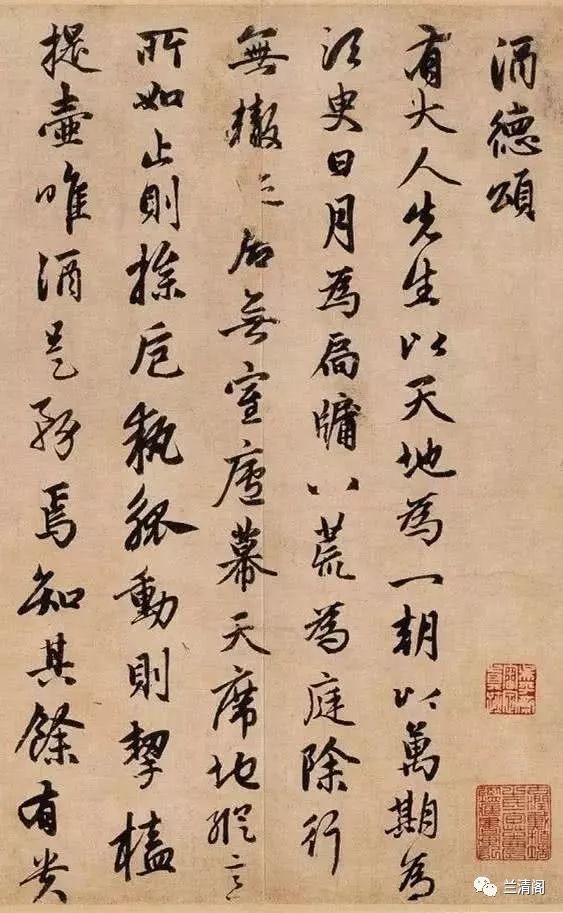 酒德頌
有大人先生以天地為一朝以萬期為
須臾日月為扃牖八荒為庭除行
無轍迹居無室廬幕天席地縱意
所如止則操卮執觚動則挈榼
提壺唯酒是務焉知其餘有貴
兰清阁